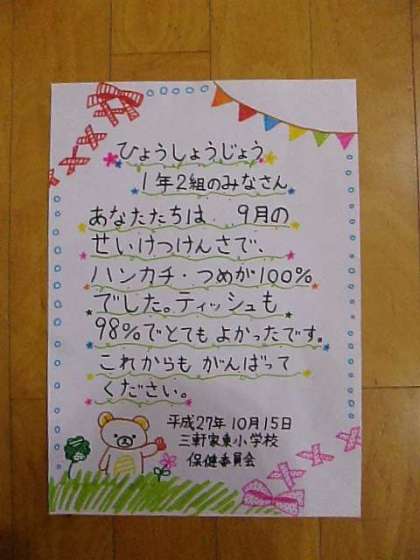 ひょうしょうじょう
1年2組のみなさん
あなたたちは、9月の
せいけつけんさで、
ハンカチ・つめが100%
でした。ティッシュも
98%でとてもよかったです。
これからもがんばって
ください。
平成27年10月15日
三軒家東小学校
保健委員会